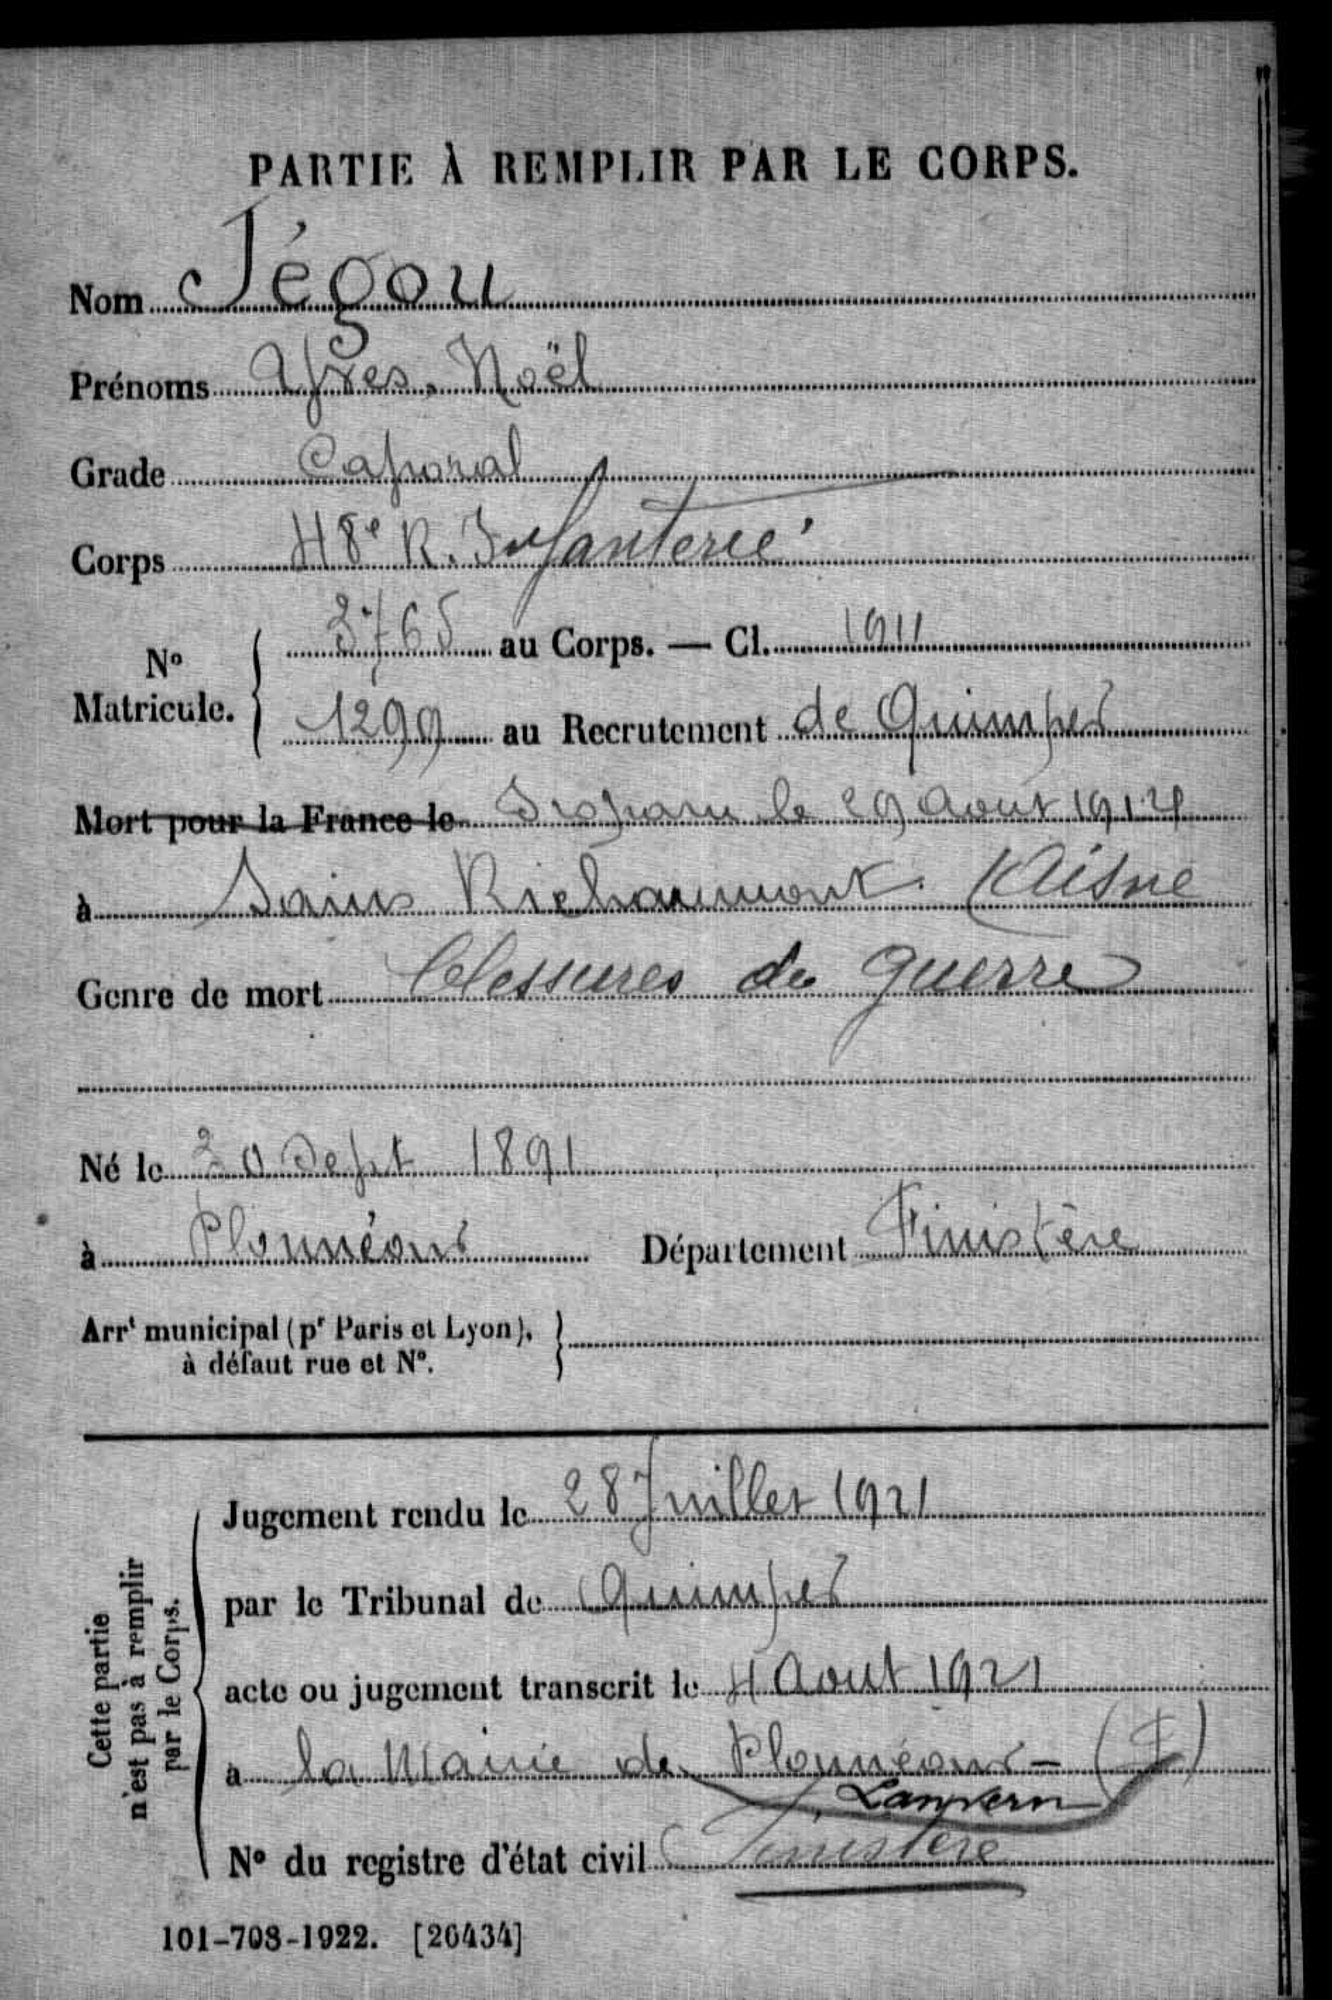 PARTIE À REMPLIR PAR LE CORPS.
Nom Jégou
Prénoms Yves. Noël
Grade Caporal
Corps 48e R. Infanterie
N° Matricule. { 3765 au Corps. — Cl. 1911
1299 au Recrutement de Quimper
Mort pour la France le Disparu le 29 Aout 1914
à Sains Richaumont (Aisne
Genre de mort blessures de guerre
Né le 20 Sept 1891
à Plounéour Département Finistère
Arrt municipal (pr Paris et Lyon), }
à défaut rue et N°.
Cette partie
n'est pas à remplir
par le Corps.
Jugement rendu le 28 Juillet 1921
par le Tribunal de Quimper
acte ou jugement transcrit le 4 Aout 1921
à la Mairie de Plounéour - (F)
Lanvern
N° du registre d'état civil Finistère
101-708-1922. [26434]